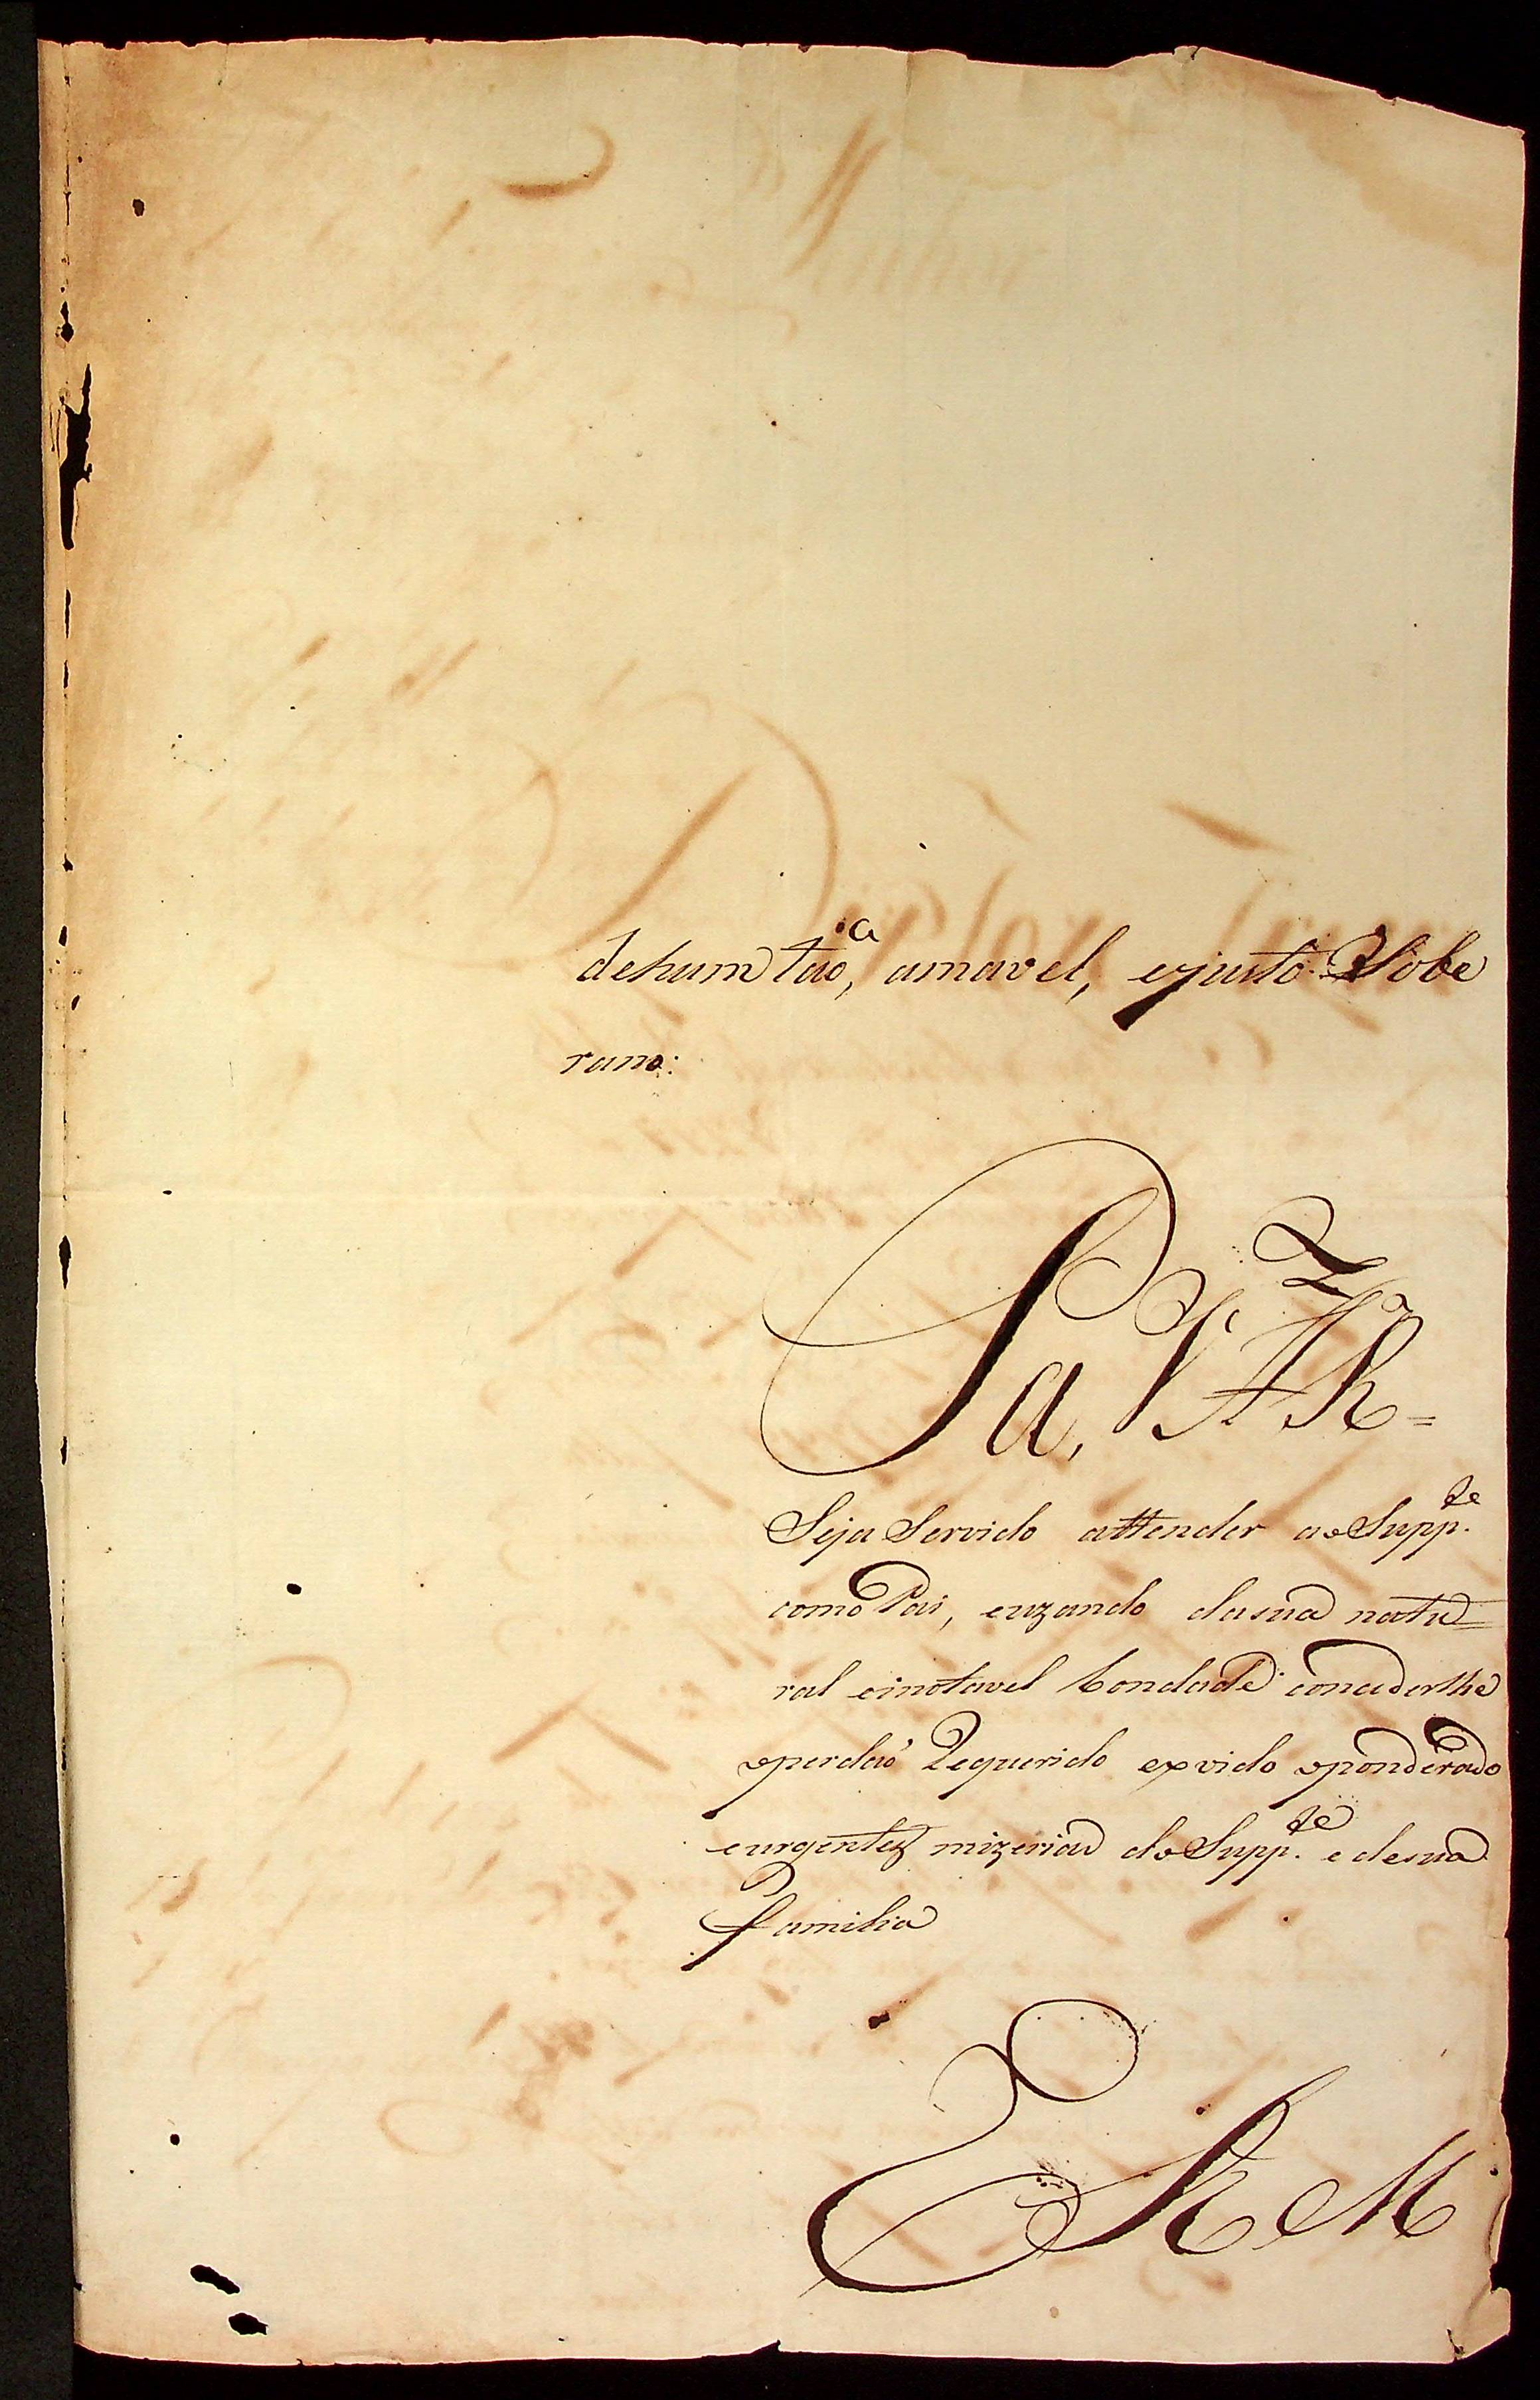 dehum tao, amavel, ejusto Sobe
rano:
Pa, V A R =
Seja Servido attender ao Supp.te
como Pai, euzando dasua natu=
ral einotavel bondade concederlhe
operdaó Requerido exvido oponderado
eurgentes mizerias do Supp.te e desua
familia
E R M